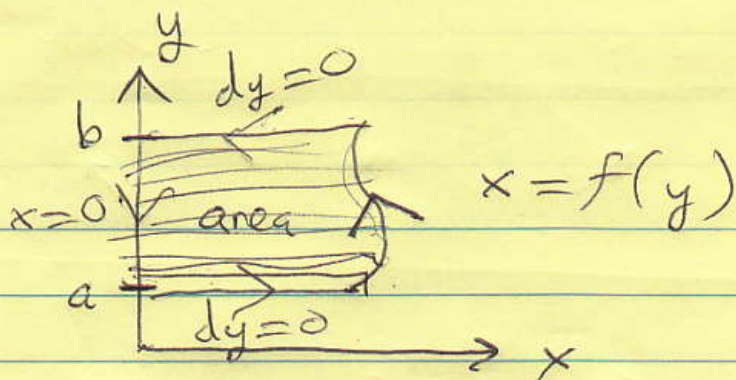 y
dy=0
b
x=0
area
x=f(y)
a
dy=0
x